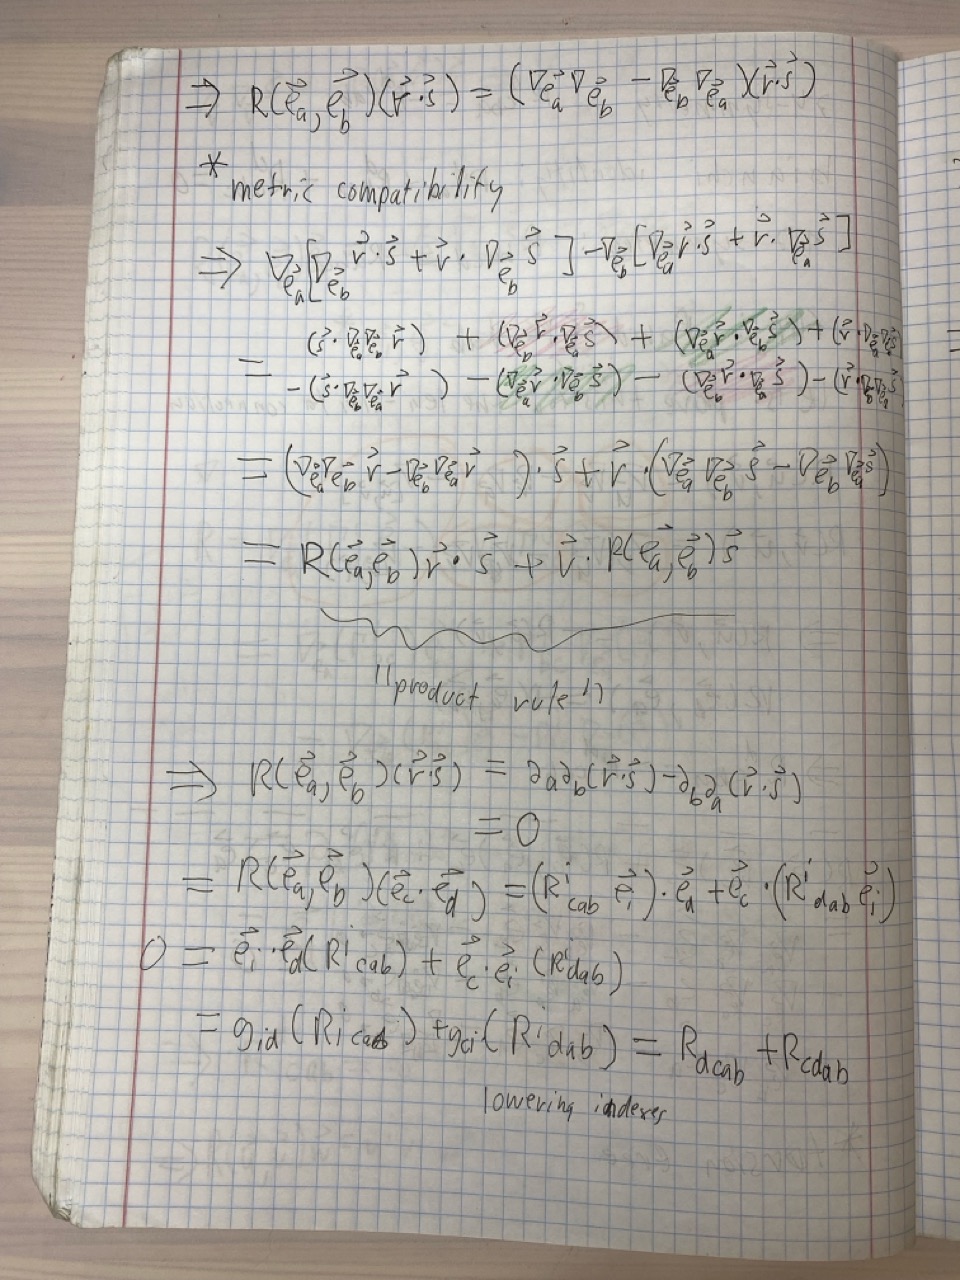 ⇒ R(e⃗_a, e⃗_b)(r⃗·s⃗) = (∇_e⃗_a ∇_e⃗_b − ∇_e⃗_b ∇_e⃗_a)(r⃗·s⃗)
* metric compatibility
⇒ ∇_e⃗_a[∇_e⃗_b r⃗·s⃗ + r⃗·∇_e⃗_b s⃗] − ∇_e⃗_b[∇_e⃗_a r⃗·s⃗ + r⃗·∇_e⃗_a s⃗]
= (s⃗·∇_e⃗_a ∇_e⃗_b r⃗) + (∇_e⃗_b r⃗·∇_e⃗_a s⃗) + (∇_e⃗_a r⃗·∇_e⃗_b s⃗) + (r⃗·∇_e⃗_a ∇_e⃗_b s⃗)
−(s⃗·∇_e⃗_b ∇_e⃗_a r⃗) − (∇_e⃗_a r⃗·∇_e⃗_b s⃗) − (∇_e⃗_b r⃗·∇_e⃗_a s⃗) − (r⃗·∇_e⃗_b ∇_e⃗_a s⃗)
= (∇_e⃗_a ∇_e⃗_b r⃗ − ∇_e⃗_b ∇_e⃗_a r⃗)·s⃗ + r⃗·(∇_e⃗_a ∇_e⃗_b s⃗ − ∇_e⃗_b ∇_e⃗_a s⃗)
= R(e⃗_a, e⃗_b)r⃗·s⃗ + r⃗·R(e⃗_a, e⃗_b)s⃗
"product rule"
⇒ R(e⃗_a, e⃗_b)(r⃗·s⃗) = ∂_a∂_b(r⃗·s⃗) − ∂_b∂_a(r⃗·s⃗)
= 0
= R(e⃗_a, e⃗_b)(e⃗_c·e⃗_d) = (R^i_cab e⃗_i)·e⃗_d + e⃗_c·(R^i_dab e⃗_i)
0 = e⃗_i·e⃗_d(R^i_cab) + e⃗_c·e⃗_i(R^i_dab)
= g_id(R^i_cab) + g_ci(R^i_dab) = R_dcab + R_cdab
lowering indexes